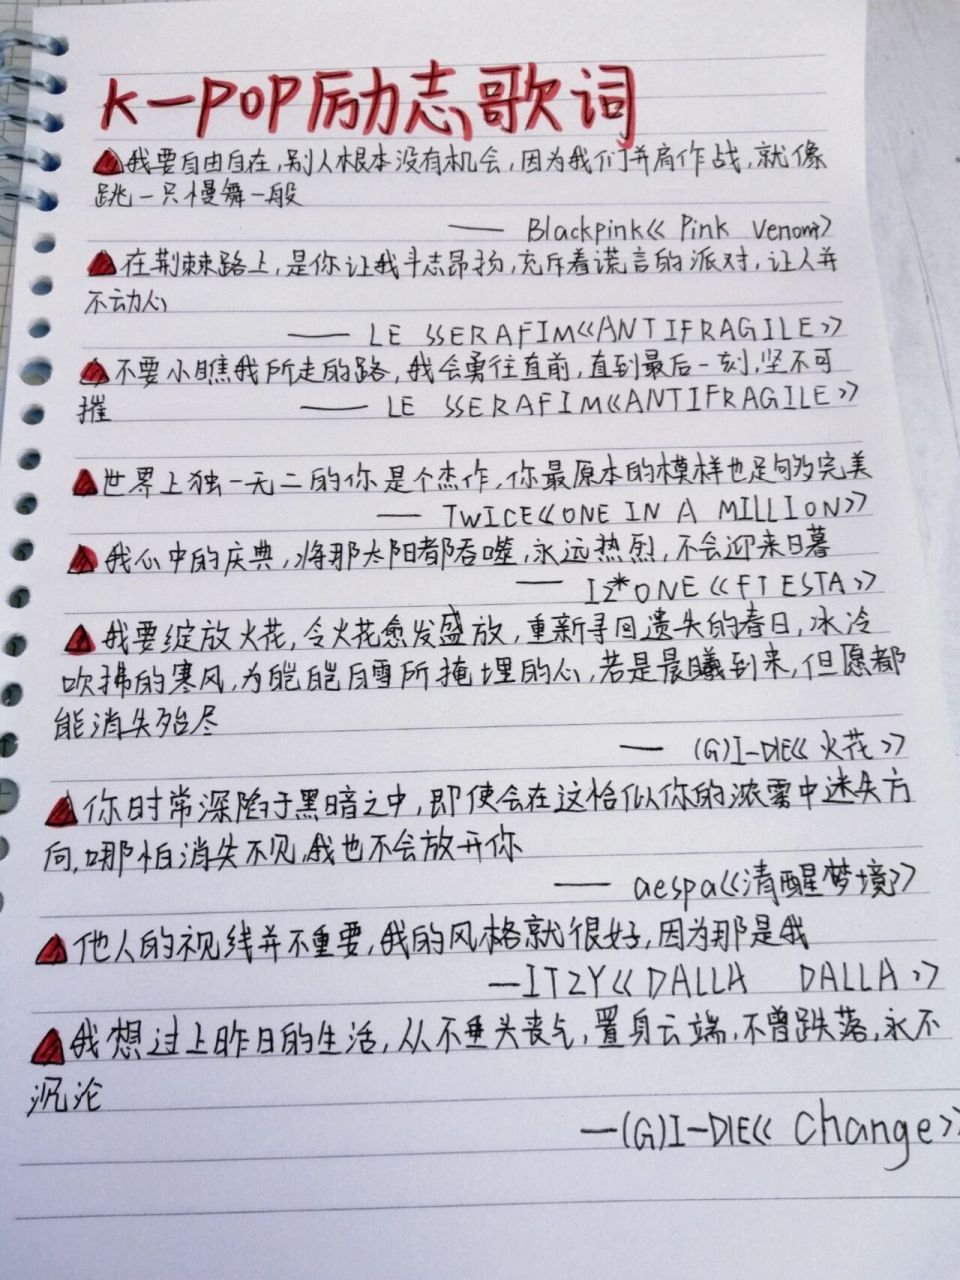 K-POP励志歌词
▲我要自由自在,别人根本没有机会,因为我们并肩作战,就像
跳一只慢舞一般
—— Blackpink《Pink Venom》
▲在荆棘路上,是你让我斗志昂扬,充斥着谎言的派对,让人并
不动心
—— LE SSERAFIM《ANTIFRAGILE》
▲不要小瞧我所走的路,我会勇往直前,直到最后一刻,坚不可
摧 —— LE SSERAFIM《ANTIFRAGILE》
▲世界上独一无二的你是个杰作,你最原本的模样也足够完美
—— TWICE《ONE IN A MILLION》
▲我心中的庆典,将那太阳都吞噬,永远热烈,不会迎来日暮
—— IZ*ONE《FIESTA》
▲我要绽放火花,令火花愈发盛放,重新寻回遗失的春日,冰冷
吹拂的寒风,为皑皑白雪所掩埋的心,若是晨曦到来,但愿都
能消失殆尽
—— (G)I-DLE《火花》
▲你时常深陷于黑暗之中,即使会在这恰似你的浓雾中迷失方
向,哪怕消失不见,我也不会放开你
—— aespa《清醒梦境》
▲他人的视线并不重要,我的风格就很好,因为那是我
—ITZY《DALLA DALLA》
▲我想过上昨日的生活,从不垂头丧气,置身云端,不曾跌落,永不
沉沦
—(G)I-DLE《Change》